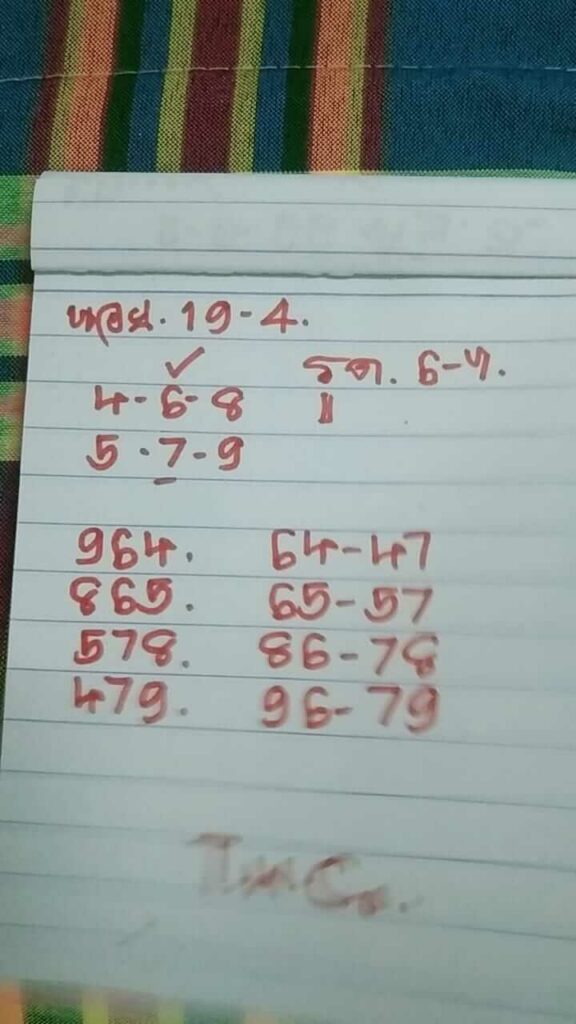 ฮานอย. 19-4.
✓
4-6-8 รูด. 6-7.
5-7-9
964. 64-47
865. 65-57
578. 86-78
479. 96-79